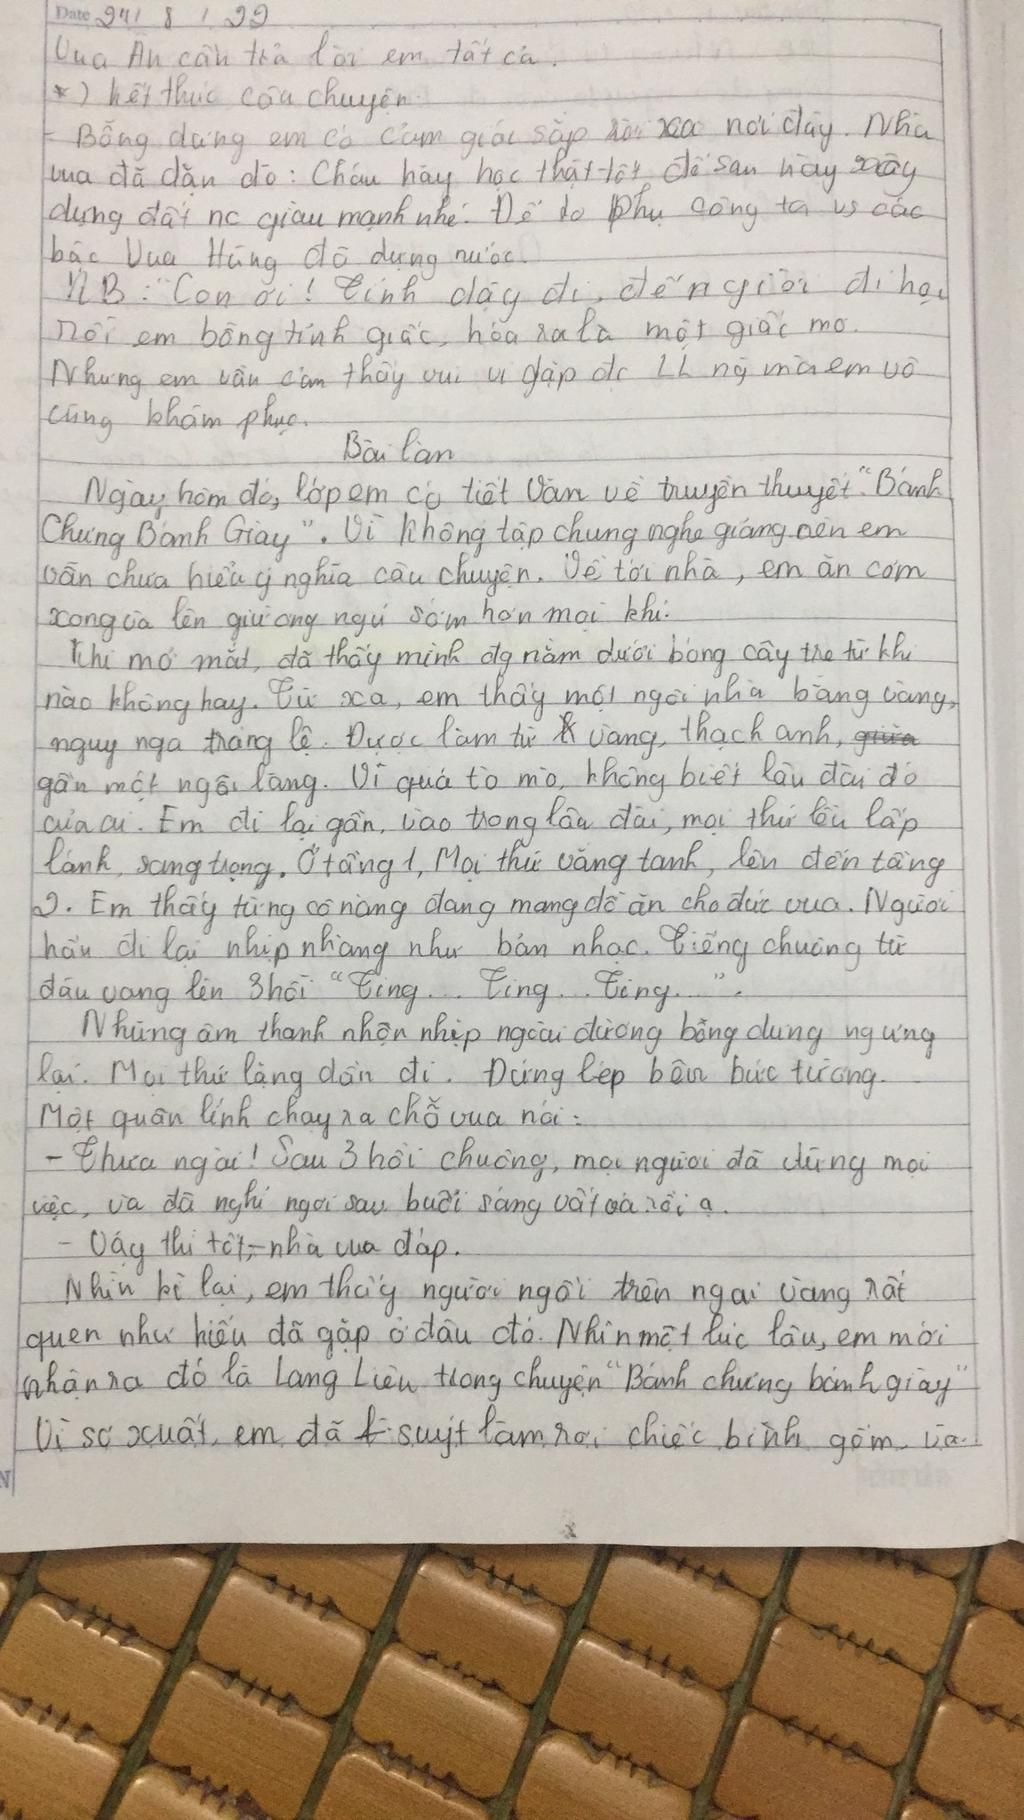 Date 24 / 8 / 22
Vua Ân cần trả lời em tất cả.
*) Kết thúc câu chuyện
- Bỗng dưng em có cảm giác sắp rời xa nơi đây. Nhà
vua đã dặn dò: Cháu hãy học thật tốt để sau này xây
dựng đất nc giàu mạnh nhé. Để ko phụ công ta vs các
bậc Vua Hùng đã dựng nước.
NB: "Con ơi! Tỉnh dậy đi, đến giờ đi học
rồi em bỗng tỉnh giấc, hóa ra là một giấc mơ.
Nhưng em vẫn cảm thấy vui vì gặp đc LL ng mà em vô
cùng khâm phục.
Bài làm
Ngày hôm đó, lớp em có tiết Văn về truyền thuyết "Bánh
Chưng Bánh Giày". Vì không tập chung nghe giảng nên em
vẫn chưa hiểu ý nghĩa câu chuyện. Về tới nhà, em ăn cơm
xong và lên giường ngủ sớm hơn mọi khi.
Khi mở mắt, đã thấy mình đg nằm dưới bóng cây tre từ khi
nào không hay. Từ xa, em thấy một ngôi nhà bằng vàng,
nguy nga tráng lệ. Được làm từ vàng, thạch anh,
gần một ngôi làng. Vì quá tò mò, không biết lâu đài đó
của ai. Em đi lại gần, vào trong lâu đài, mọi thứ đều lấp
lánh, sang trọng. Ở tầng 1, Mọi thứ vắng tanh, lên đến tầng
2. Em thấy từng cô nàng đang mang đồ ăn cho đức vua. Người
hầu đi lại nhịp nhàng như bản nhạc. Tiếng chuông từ
đâu vang lên 3 hồi "Ting... Ting... Ting...".
Những âm thanh nhộn nhịp ngoài đường bỗng dưng ngưng
lại. Mọi thứ lặng dần đi. Đứng lép bên bức tường.
Một quân lính chạy ra chỗ vua nói:
- Thưa ngài! Sau 3 hồi chuông, mọi người đã dừng mọi
việc, và đã nghỉ ngơi sau buổi sáng vất vả rồi ạ.
- Vậy thì tốt, - nhà vua đáp.
Nhìn kĩ lại, em thấy người ngồi trên ngai vàng rất
quen như kiểu đã gặp ở đâu đó. Nhìn một lúc lâu, em mới
nhận ra đó là Lang Liêu trong chuyện "Bánh chưng bánh giày"
Vì sơ xuất, em đã suýt làm rơi chiếc bình gốm và